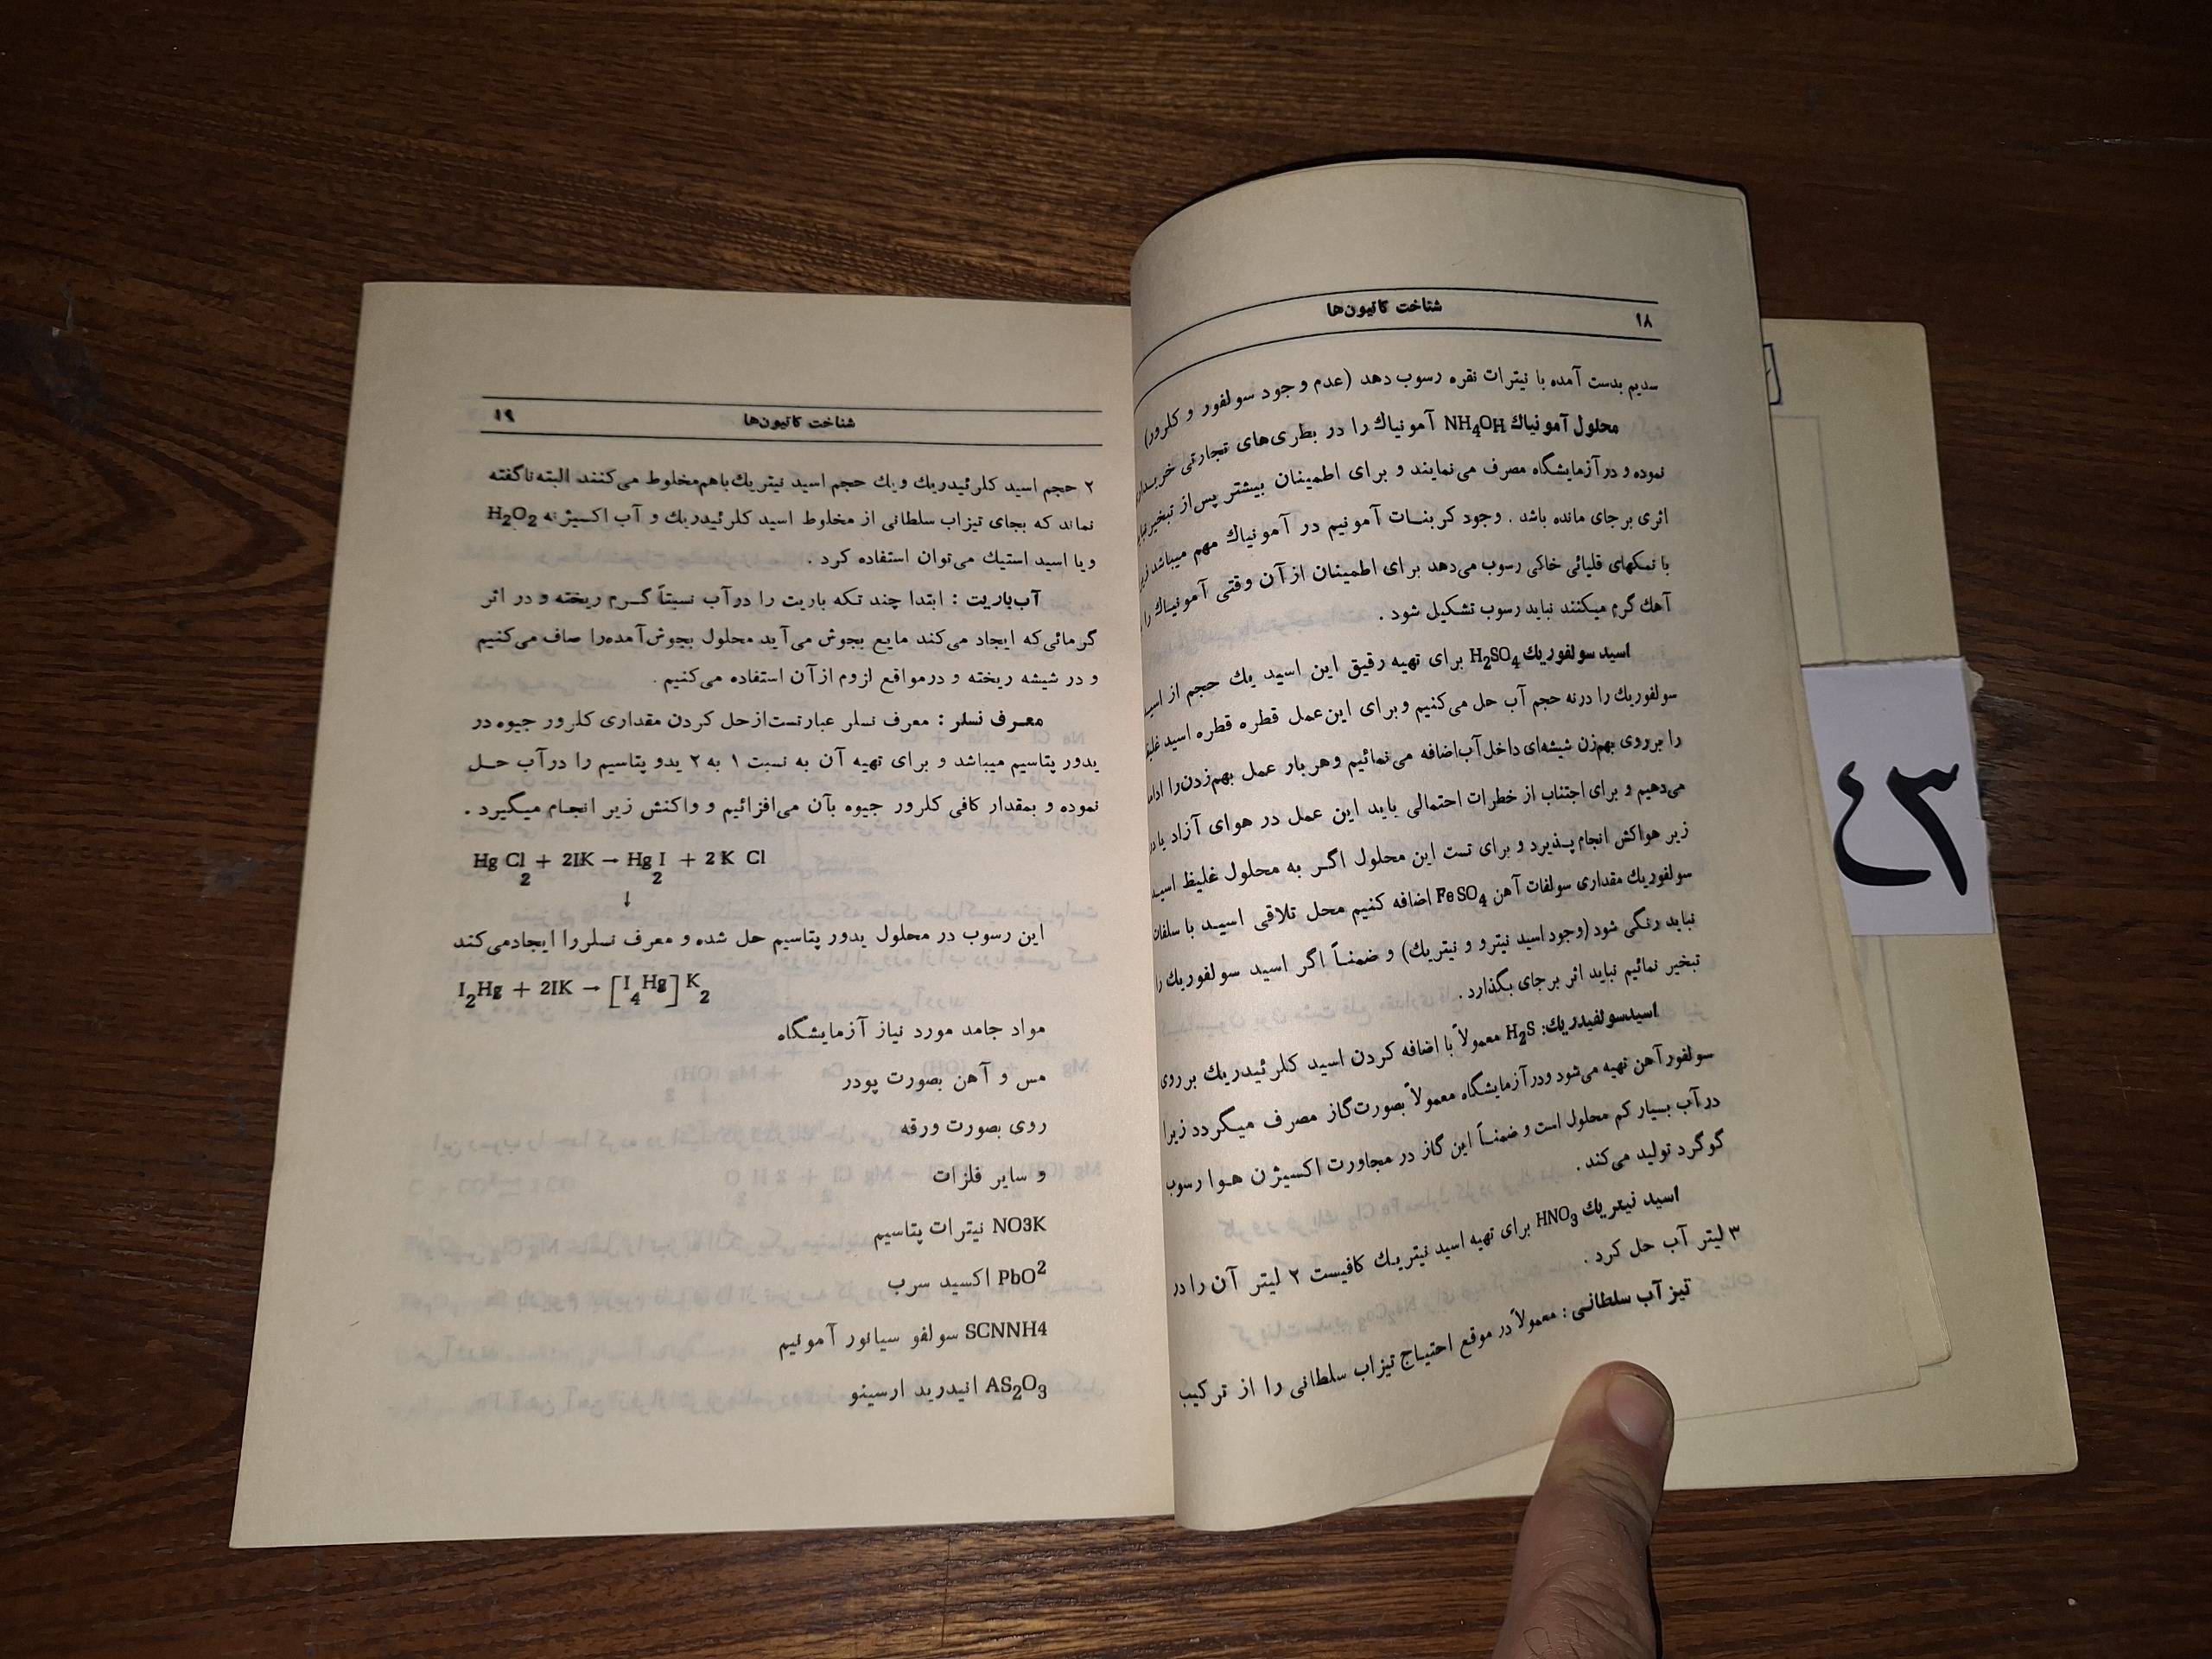 شناخت کاتیون‌ها
۱۸
سدیم بدست آمده با نیترات نقره رسوب دهد (عدم وجود سولفور و کلرور)
محلول آمونیاك NH4OH آمونیاك را در بطری‌های تجارتی
نموده و در آزمایشگاه مصرف می‌نمایند و برای اطمینان بیشتر پس از تبخیر
اثری بر جای مانده باشد . وجود کربنات آمونیم در آمونیاك مهم میباشد
با نمکهای قلیائی خاکی رسوب می‌دهد برای اطمینان از آن وقتی آمونیاك را
آهك گرم میکنند نباید رسوب تشکیل شود .
اسید سولفوریك H2SO4 برای تهیه رقیق این اسید یك حجم از
سولفوریك را درنه حجم آب حل می‌کنیم و برای این عمل قطره قطره اسید
را بر روی بهم‌زن شیشه‌ای داخل آب اضافه می‌نمائیم و هر بار عمل بهم‌زدن را
می‌دهیم و برای اجتناب از خطرات احتمالی باید این عمل در هوای آزاد یا
زیر هواکش انجام پذیرد و برای تست این محلول اگر به محلول غلیظ اسید
سولفوریك مقداری سولفات آهن FeSO4 اضافه کنیم محل تلاقی اسید با سلفات
نباید رنگی شود (وجود اسید نیترو و نیتریك) و ضمناً اگر اسید سولفوریك را
تبخیر نمائیم نباید اثر برجای بگذارد .
اسیدسولفیدریك: H2S معمولاً با اضافه کردن اسید کلرئیدریك بر روی
سولفور آهن تهیه می‌شود ودر آزمایشگاه معمولاً بصورت گاز مصرف میگردد زیرا
در آب بسیار کم محلول است و ضمناً این گاز در مجاورت اکسیژن هوا رسوب
گوگرد تولید می‌کند .
اسید نیتریك HNO3 برای تهیه اسید نیتریك کافیست ۲ لیتر آن را در
۳ لیتر آب حل کرد .
تیز آب سلطانی : معمولاً در موقع احتیاج تیزاب سلطانی را از ترکیب
۴۳
شناخت کاتیون‌ها
۱۹
۲ حجم اسید کلرئیدریك ویك حجم اسید نیتریك باهم مخلوط می‌کنند البته ناگفته
نماند که بجای تیزاب سلطانی از مخلوط اسید کلرئیدریك و آب اکسیژنه H2O2
ویا اسید استیك می‌توان استفاده کرد .
آب باریت : ابتدا چند تکه باریت را در آب نسبتاً گرم ریخته و در اثر
گرمائی که ایجاد می‌کند مایع بجوش می‌آید محلول بجوش آمده را صاف می‌کنیم
و در شیشه ریخته و درمواقع لزوم از آن استفاده می‌کنیم .
معرف نسلر : معرف نسلر عبارتست از حل کردن مقداری کلرور جیوه در
یدور پتاسیم میباشد و برای تهیه آن به نسبت ۱ به ۲ یدو پتاسیم را در آب حل
نموده و بمقدار کافی کلرور جیوه بآن می‌افزائیم و واکنش زیر انجام میگیرد .
Hg Cl2 + 2IK → Hg I2 + 2 K Cl
↓
این رسوب در محلول یدور پتاسیم حل شده و معرف نسلر را ایجاد می‌کند
I2Hg + 2IK → [I4 Hg] K2
مواد جامد مورد نیاز آزمایشگاه
مس و آهن بصورت پودر
روی بصورت ورقه
و سایر فلزات
NO3K نیترات پتاسیم
PbO2 اکسید سرب
SCNNH4 سولفو سیانور آمونیم
AS2O3 انیدرید ارسینو